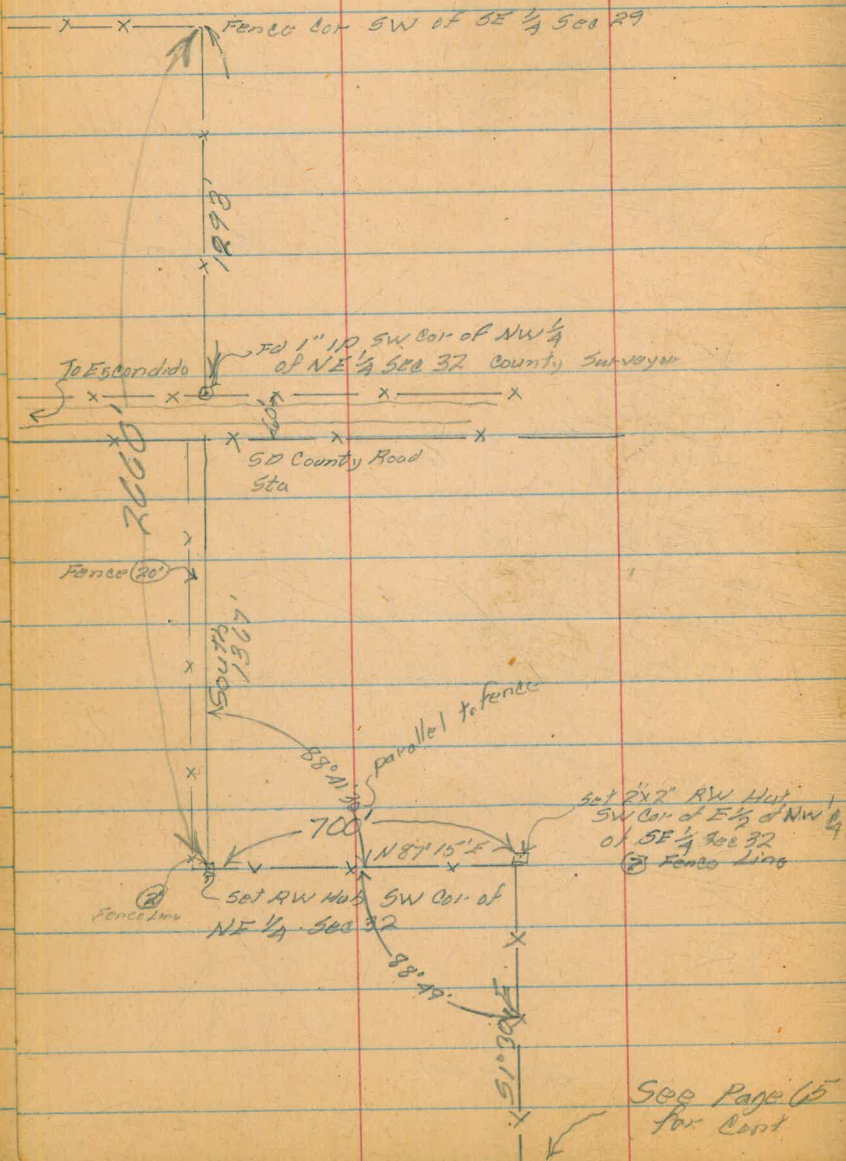 Fence Cor SW of SE 1/4 Sec 29
1293'
Fd 1" IP SW Cor of NW 1/4
of NE 1/4 Sec 32 County Surveyor
To Escondido
60'
2660'
SD County Road
Sta
Fence 20'
South
1367'
parallel to fence
88° 41'
700'
Set 2"x2" RW Hub
SW Cor of E 1/2 of NW 1/4
of SE 1/4 Sec 32
Fence Line
N 87° 15' E
2'
Fence Line
Set RW Hub SW Cor of
NE 1/4 Sec 32
88° 49'
S 1° 30' E
See Page 65
for Cont